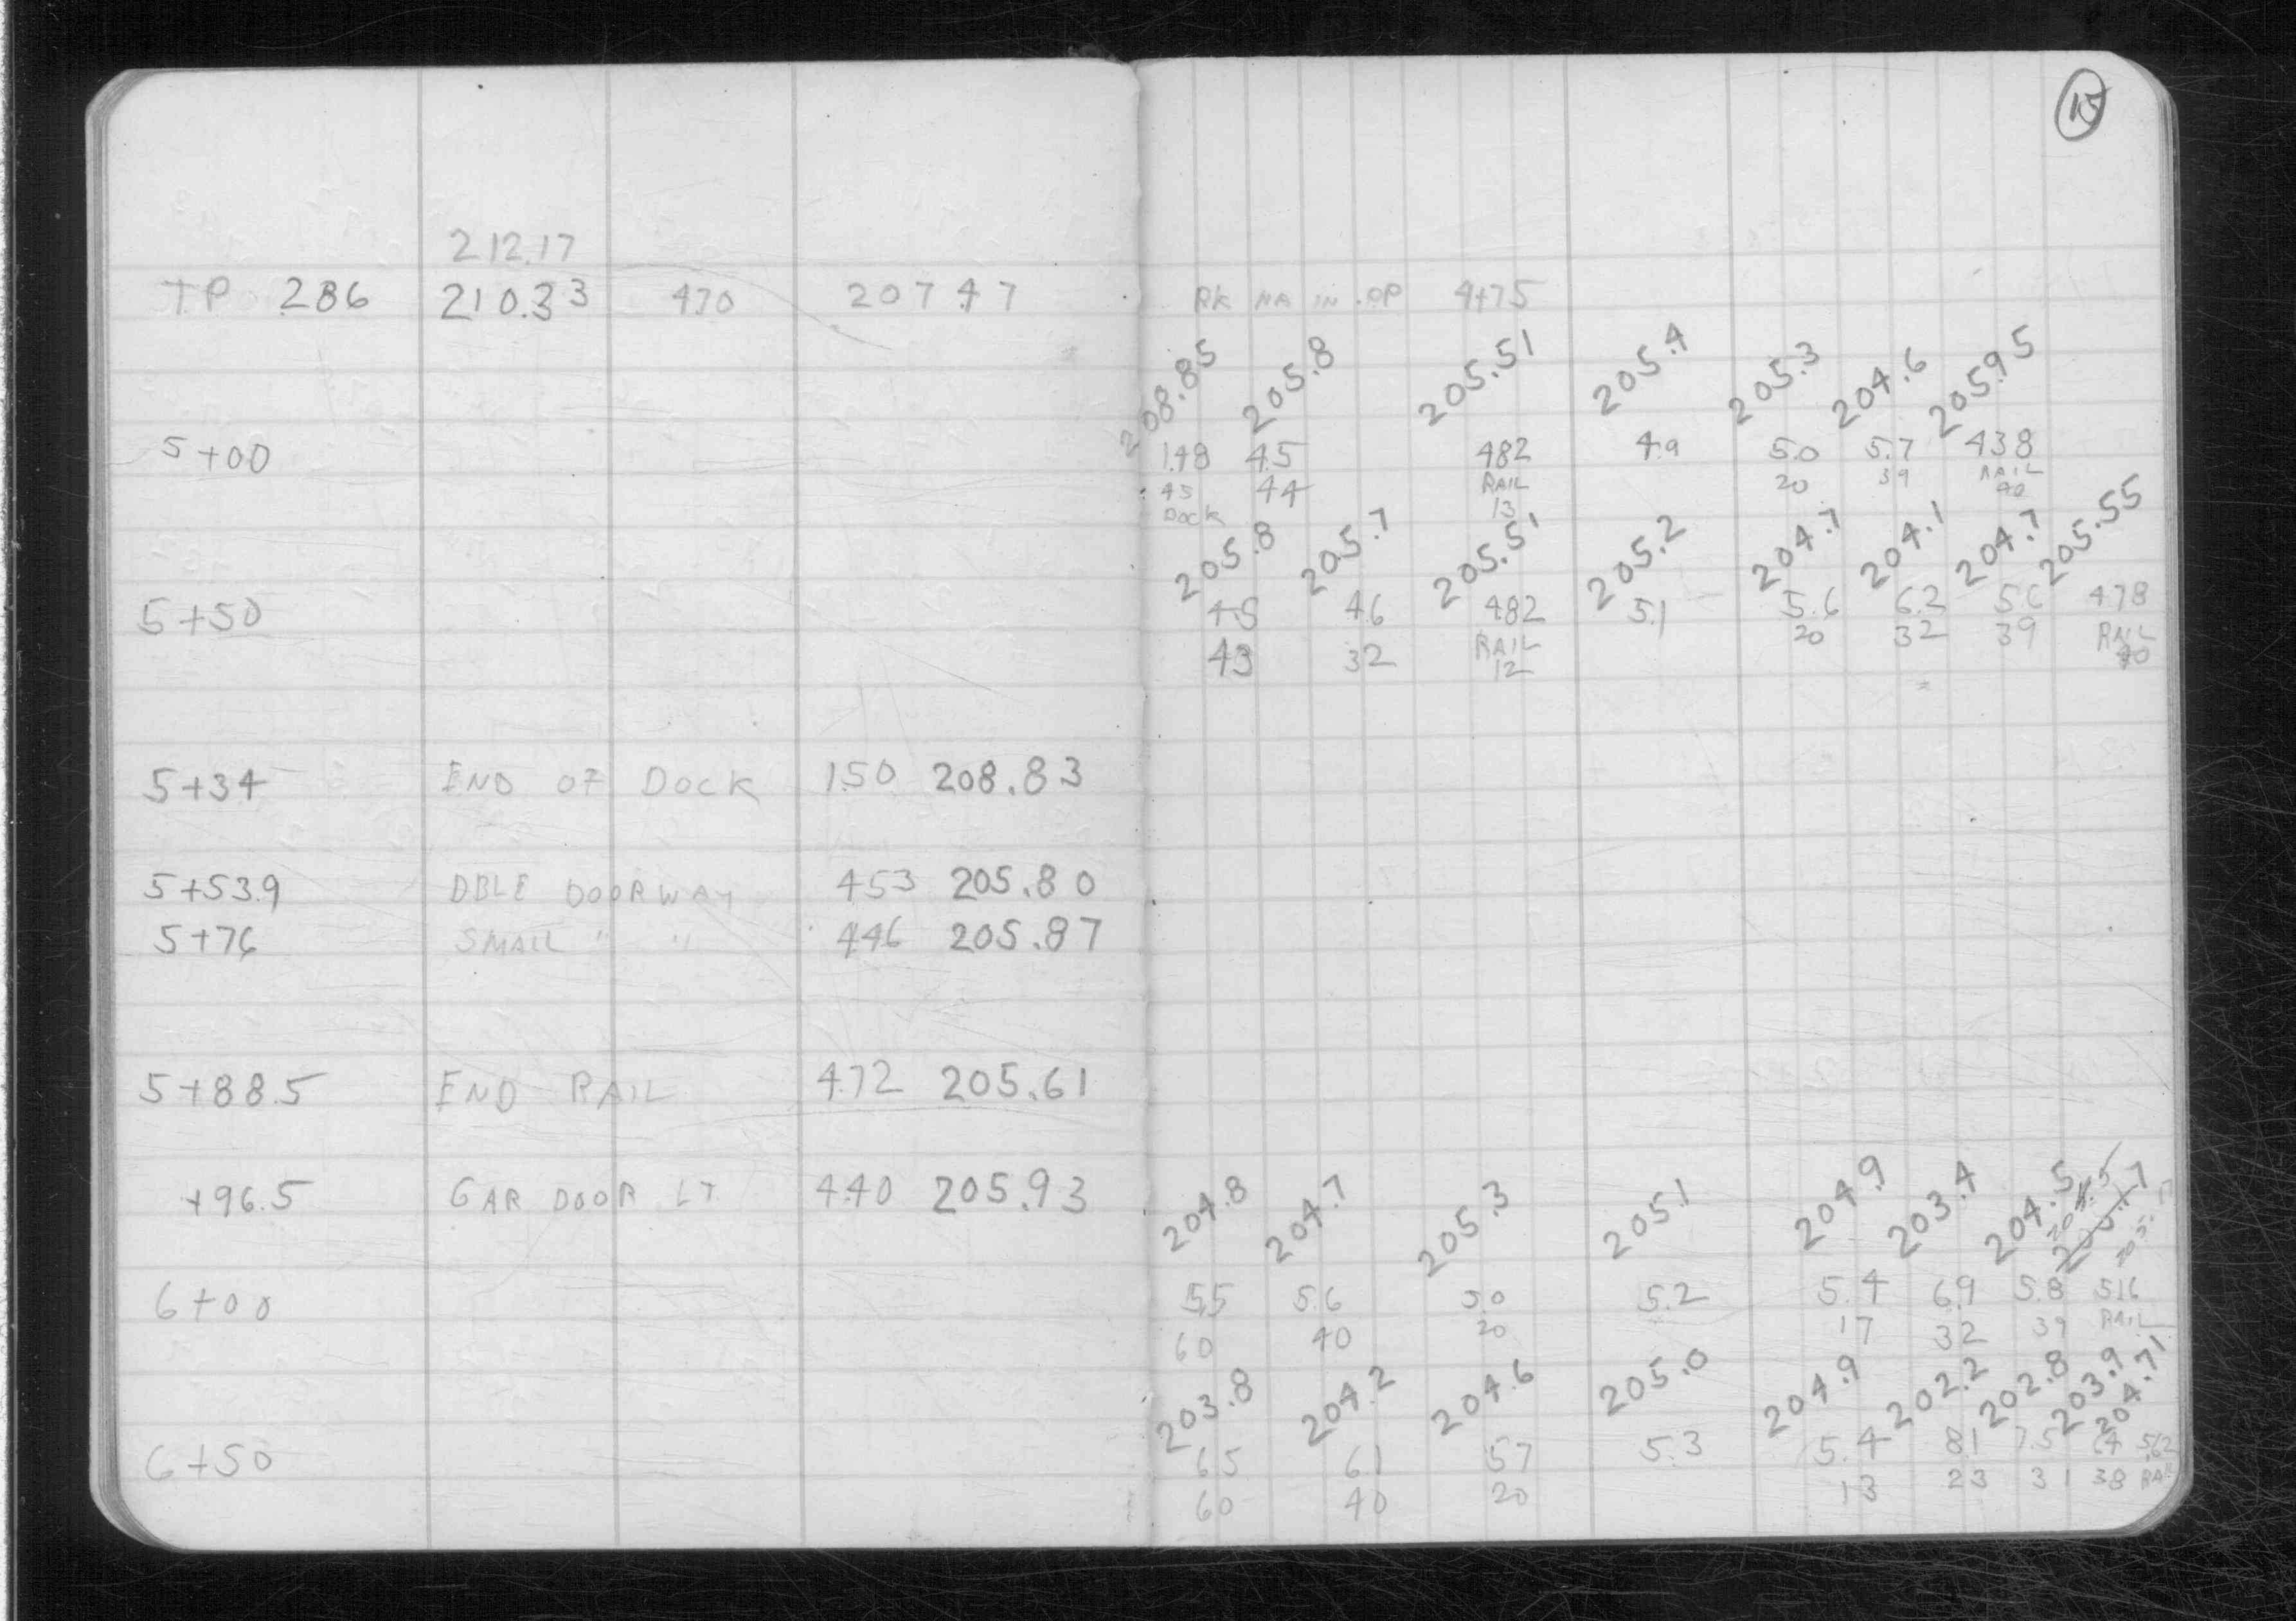 15
212.17
TP 2.86 210.33 4.70 207.47 4.75
208.85 205.8 205.51 205.4 205.3 204.6 205.95
5+00 1.48 4.5 4.82 4.9 5.0 5.7 4.38
45 44 RAIL 20 39 RAIL
DOCK 13 40
205.8 205.7 205.51 205.2 204.7 204.1 204.7 205.55
5+50 4.5 4.6 4.82 5.1 5.6 6.2 5.6 4.78
43 32 RAIL 20 32 39 RAIL
12 40
5+34 END OF DOCK 1.50 208.83
5+53.9 DBLE DOORWAY 4.53 205.80
5+76 SMALL " " 4.46 205.87
5+88.5 END RAIL 4.72 205.61
+96.5 GAR DOOR LT 4.40 205.93
204.8 204.7 205.3 205.1 204.9 203.4 204.5
6+00 5.5 5.6 5.0 5.2 5.4 6.9 5.8 5.16
60 40 20 17 32 39 RAIL
203.8 204.2 204.6 205.0 204.9 202.2 202.8 203.9 204.71
6+50 6.5 6.1 5.7 5.3 5.4 8.1 7.5 6.4 5.62
60 40 20 13 23 31 38 RAIL